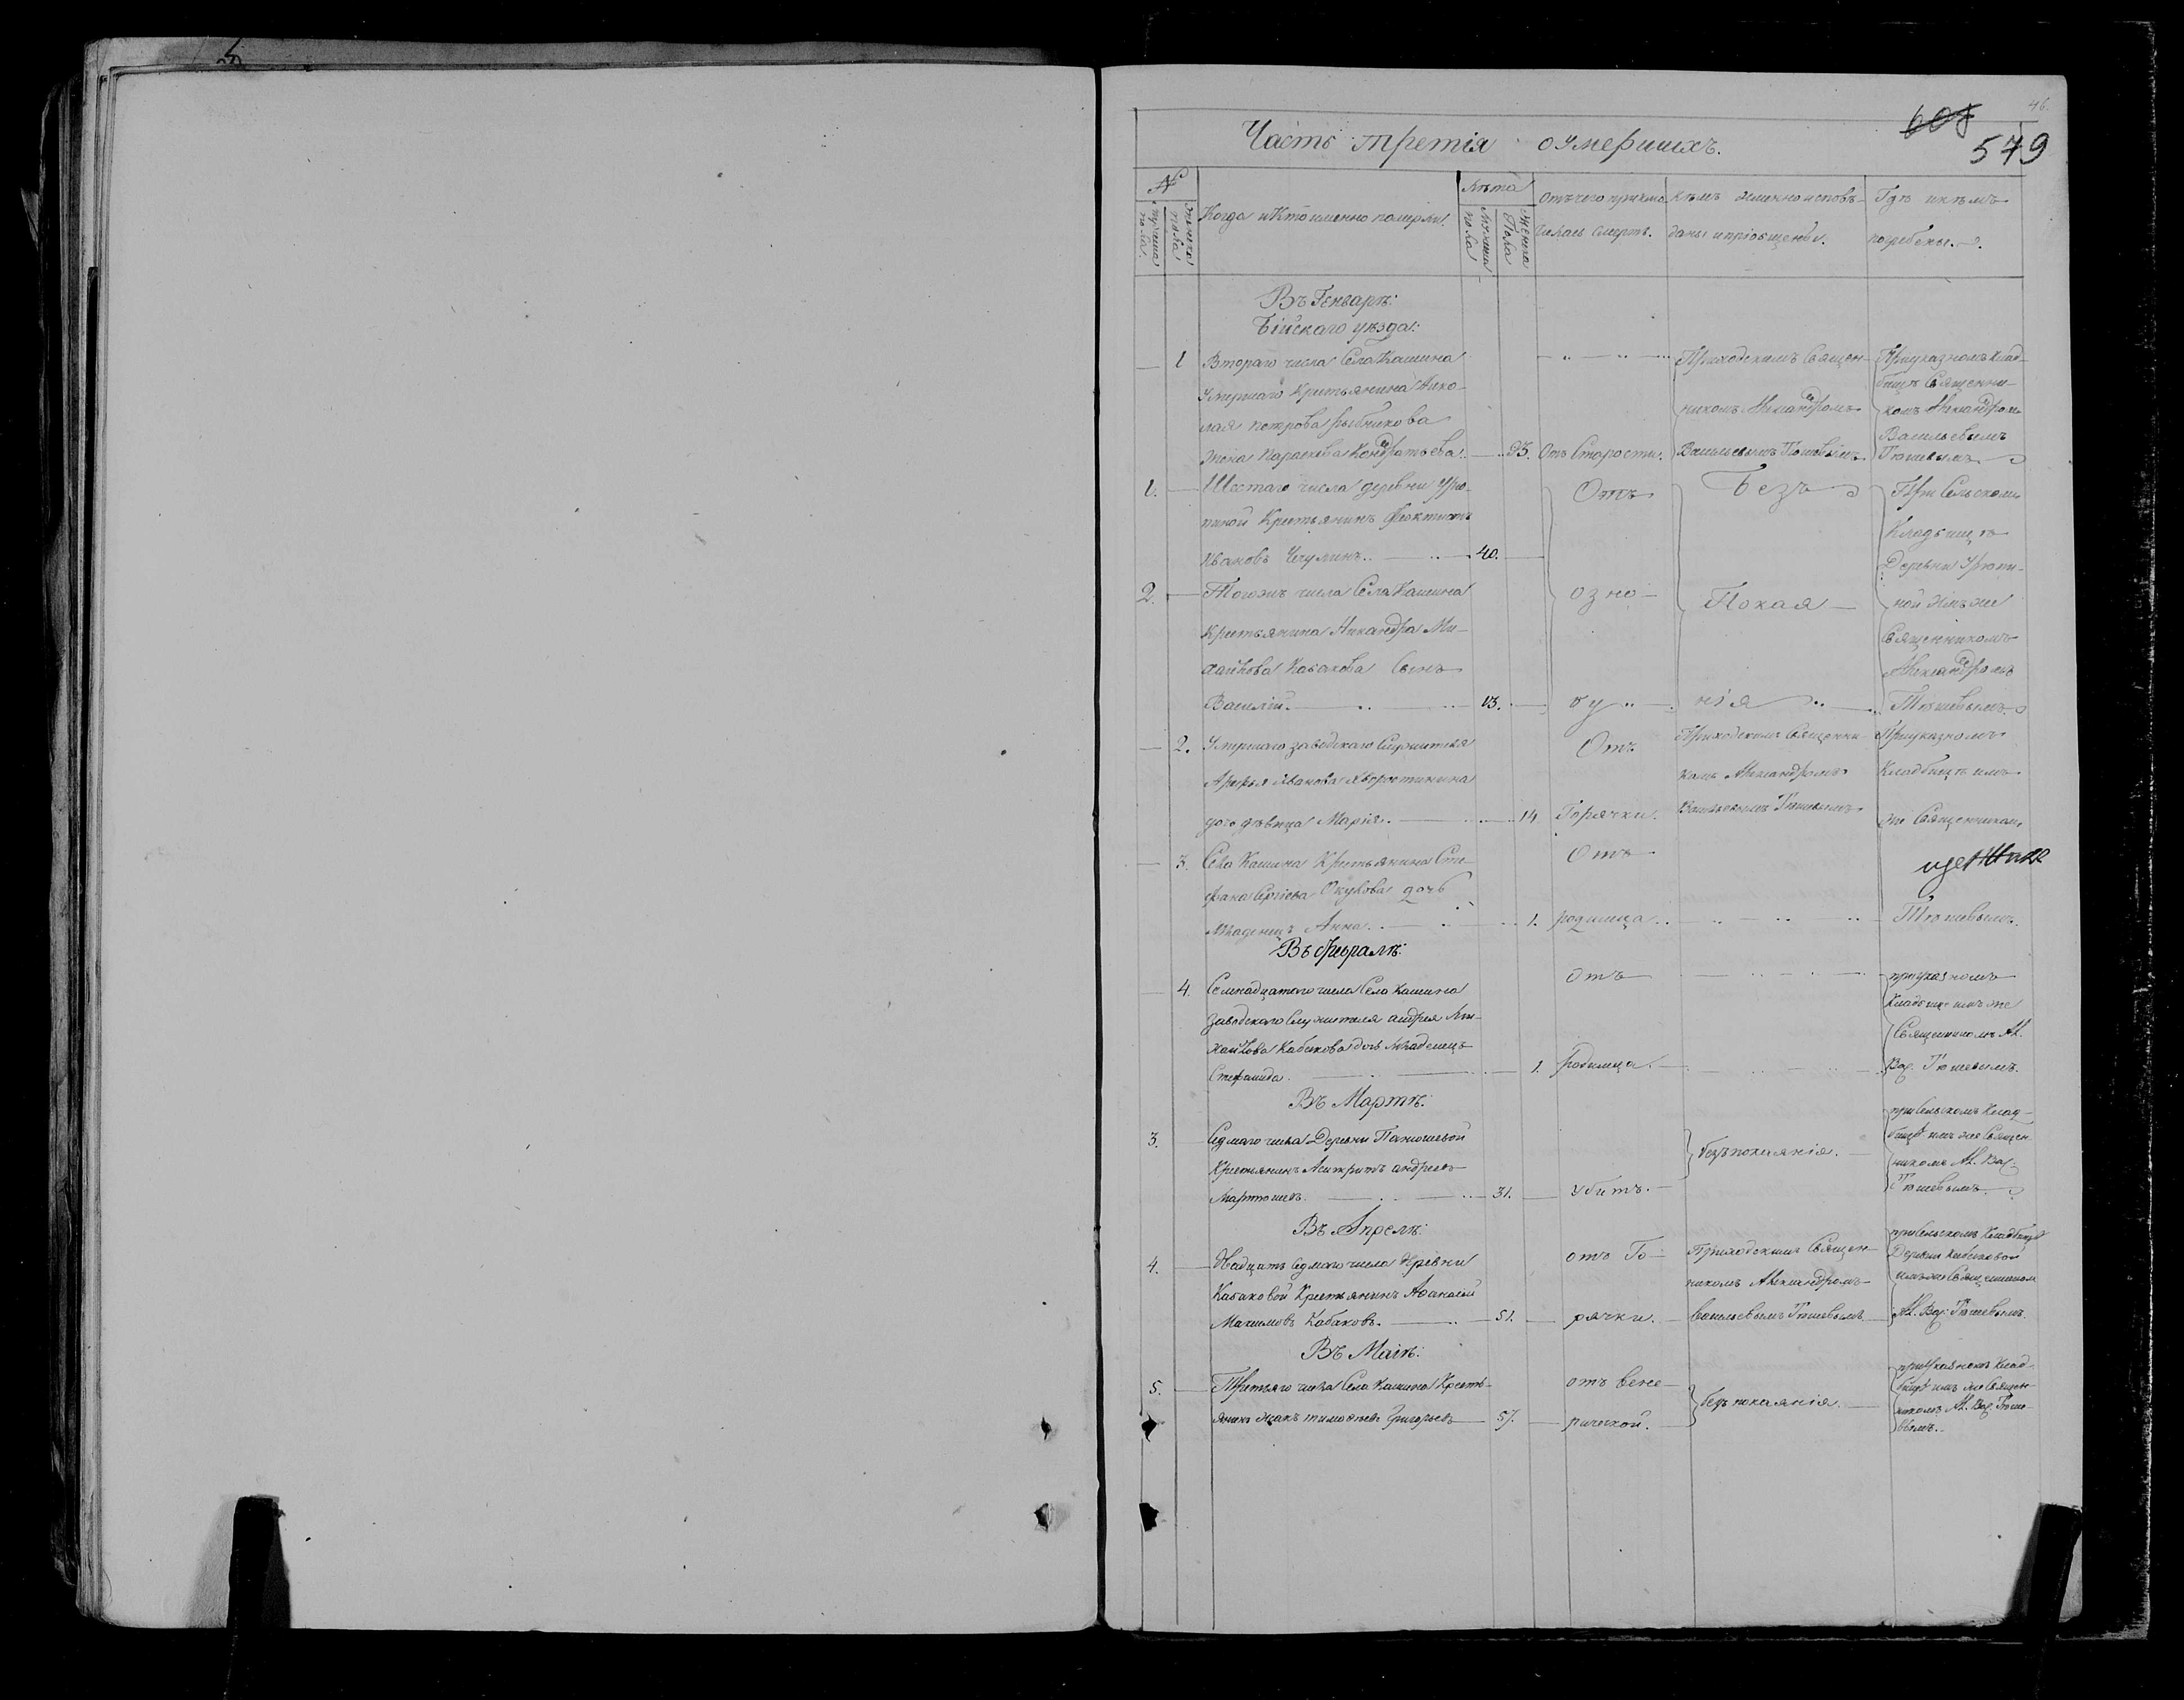 46.
608
579
Часть третія оумершихъ.
№
Мужеска пола
Женска пола
Когда и Кто именно померли.
Лѣта
Мужеска пола
Женска Пола
Отъ чего приклю
чилась смерть.
Кѣмъ именно исповѣ
даны и пріобщены.
Гдѣ и кѣмъ
погребены.
Въ Генварѣ:
Бійскаго уѣзда:
1 Втораго числа Села Кашина
Умершаго Крестьянина Нико-
лая Петрова Рыбникова
жена Параскева Кондратьева. 93. Отъ Старости.
Приходскимъ Священ-
никомъ Александромъ
Васильевымъ Тюшевымъ
При указномъ Клад-
бищѣ Священни-
комъ Александром
Васильевымъ
Тюшевымъ
1. Шестаго числа деревни Урю-
пиной Крестьянинъ Феоктистъ
Ивановъ Чечулинъ. 40.
2. Тогожъ числа Села Кашина
Крестьянина Никандра Ми-
хайлова Казакова Сынъ
Василій. 13.
Отъ
озно-
бу
Безъ
Покая-
нія
При Сельскомъ
Кладбищѣ
Деревни Урюпи-
ной Имъ же
Священникомъ
Александромъ
Тюшевымъ.
2. Умершаго заводскаго Служителя
Арефья Иванова Хворостинина
дочь дѣвица Марія. 14
Отъ
Горячки.
Приходскимъ Священни-
комъ Александромъ
Васильевымъ Тюшевымъ
При указномъ
Кладбищѣ имъ
же Священником
3. Села Кашина Крестьянина Сте-
фана Сергіева Окулова дочь
Младенецъ Анна. 1.
Отъ
родимца
Тюшевымъ.
Въ Февралѣ:
4. Семнадцатаго числа Села Кашина
Заводскаго Служителя андрея Ми-
хайлова Кабакова дочь Младенецъ
Стефанида. 1.
отъ
родимца.
при указномъ
Кладбищѣ имъ же
Священникомъ Ал.
Вас. Тюшевымъ.
Въ Мартѣ:
3. Седмаго числа Деревни Панюшевой
Крестьянинъ Асигкритъ андреевъ
Мартюшевъ. 31. убитъ.
безъ покаянія.
при Сельскомъ Клад-
бищѣ имъ же Священ
никомъ Ал. Вас.
Тюшевымъ.
Въ Апрелѣ:
4. Двадцать седмаго числа Деревни
Кабаковой Крестьянинъ Афанасій
Максимовъ Кабаковъ. 51.
отъ Го-
рячки.
Приходскимъ Священ-
никомъ Александромъ
Васильевымъ Тюшевымъ
при Сельскомъ Кладбищѣ
Деревни Кабаковой
имъ же Священником
Ал. Вас. Тюшевымъ.
Въ Маіѣ:
5. Третьяго числа Села Кашина Кресть-
янинъ Исакъ тимофѣевъ Григорьевъ 57.
отъ вене-
рической.
безъ покаянія.
при указномъ Клад-
бищѣ имъ же Священ-
никомъ Ал. Вас. Тюше-
вымъ.